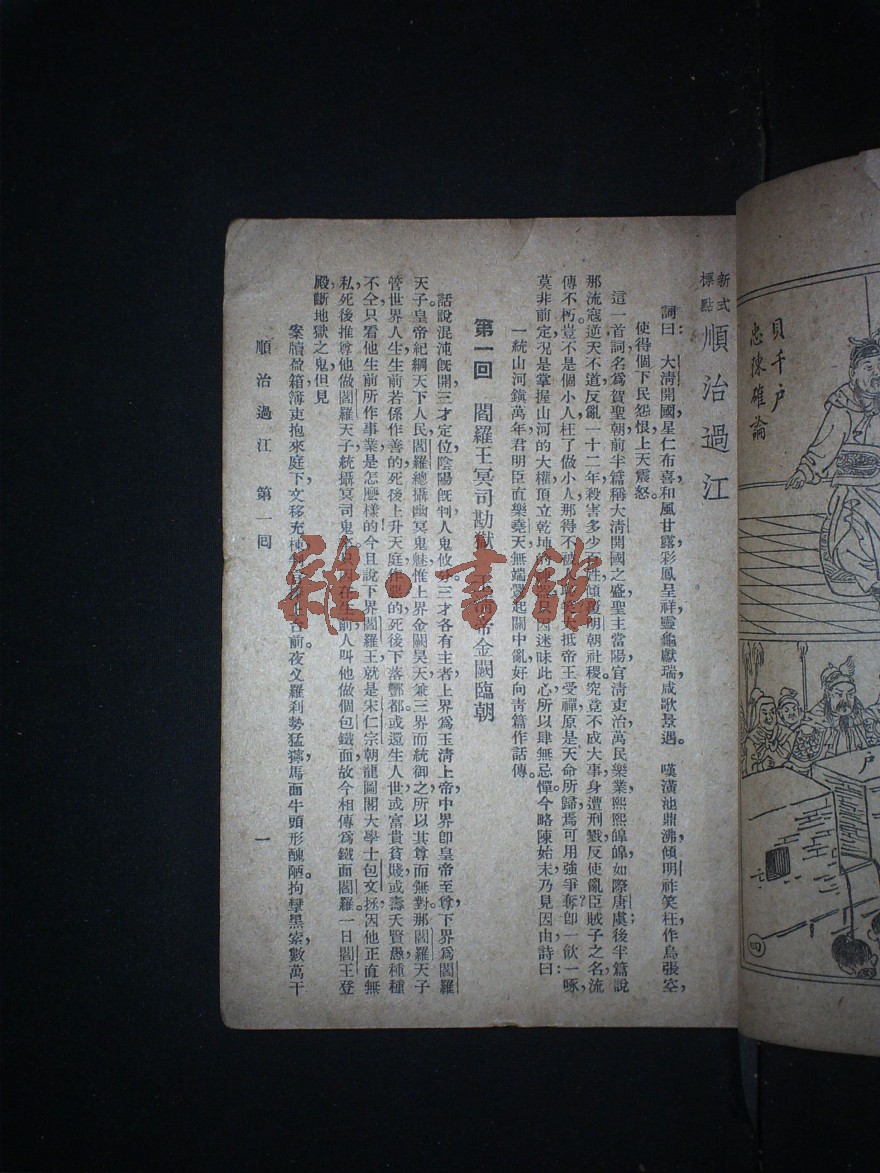 貝千户
忠陳確論
四
新式標點 順治過江
詞曰:大清開國星仁布喜和風甘露彩鳳呈祥靈龜獻瑞咸歌景遇。 嘆潢池鼎沸傾明祚笑枉作鳥張空,
使得個下民怨恨,上天震怒。
這一首詞名爲賀聖朝前半篇稱大清開國之盛聖主當陽官清吏治萬民樂業熙熙皡皡如際唐虞;後半篇說
那流寇逆天不道反亂一十二年殺害多少百姓傾覆明朝社稷究竟不成大事身遭刑戮反使亂臣賊子之名流
傳不朽豈不是個小人枉了做小人那得不被 大抵帝王受禪原是天命所歸焉可用強爭奪?卽一飲一啄,
莫非前定况是掌握山河的大權頂立乾坤 只因迷昧此心所以肆無忌憚。今略陳始末乃見因由詩曰:
一統山河鎮萬年,君明臣直樂堯天,無端 起關中亂,好向靑篇作話傳。
第一回 閻羅王冥司勘獄 玉 帝金闕臨朝
話說混沌旣開三才定位陰陽旣判人鬼攸分三才各有主者上界爲玉淸上帝中界卽皇帝至尊下界爲閻羅
天子。皇帝紀綱天下人民閻羅總攝幽冥鬼魅惟上界金闕昊天兼三界而統御之所以其尊而無對。那閻羅天子
管世界人生生前若係作善的死後上升天庭作惡的死後下落酆都或還生人世或富貴貧賤或壽夭賢愚種種
不仝只看他生前所作事業是怎麽樣的!今且說下界閻羅王就是宋仁宗朝龍圖閣大學士包文拯因他正直無
私死後推尊他做閻羅天子統攝冥司鬼 只因在生前人叫他做個包鐵面故今相傳爲鐵面閻羅。一日閻王登
殿斷地獄之鬼但見
案牘盈箱簿吏抱來庭下,文移充棟 台前。夜叉羅刹勢猛獰,馬面牛頭形醜陋。拘攣黑索數萬干
順治過江 第一回 一
雜·書館